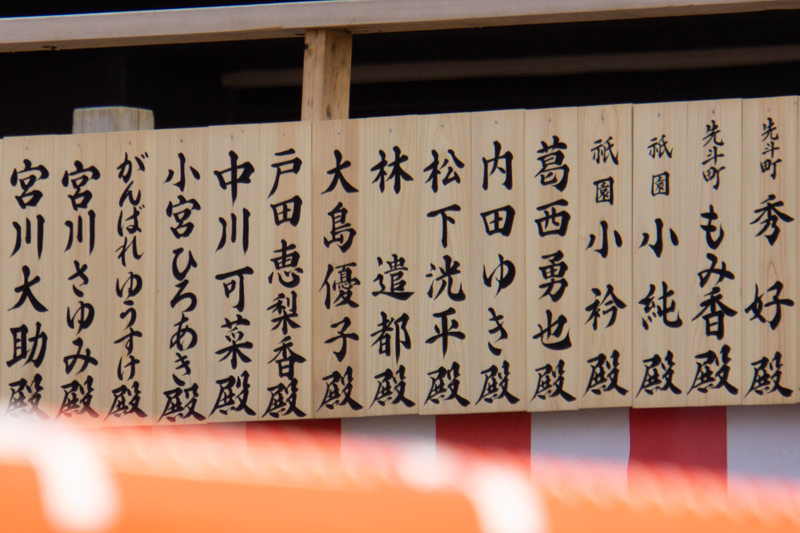 先斗町 秀好殿
先斗町 もみ香殿
祇園 小純殿
祇園 小衿殿
葛西勇也殿
内田ゆき殿
松下洸平殿
林 遣都殿
大島優子殿
戸田恵梨香殿
中川可菜殿
小宮ひろあき殿
がんばれゆうすけ殿
宮川さゆみ殿
宮川大助殿